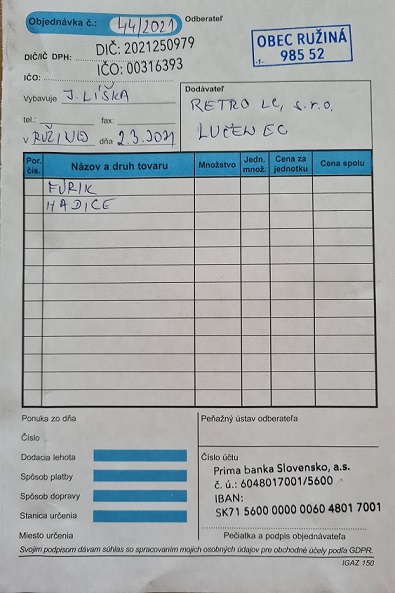 Objednávka č.: 44/2021 Odberateľ
DIČ/IČ DPH: DIČ: 2021250979
IČO: IČO: 00316393
OBEC RUŽINÁ
985 52
Vybavuje J. LÍŠKA
tel.: fax:
v RUŽINEJ dňa 2.3.2021
Dodávateľ
RETRO LC, s.r.o.
LUČENEC
Por. čís. Názov a druh tovaru Množstvo Jedn. množ. Cena za jednotku Cena spolu
FÚRIK
HADICE
Ponuka zo dňa
Číslo
Dodacia lehota
Spôsob platby
Spôsob dopravy
Stanica určenia
Miesto určenia
Peňažný ústav odberateľa
Číslo účtu
Prima banka Slovensko, a.s.
č. ú.: 6048017001/5600
IBAN:
SK71 5600 0000 0060 4801 7001
Pečiatka a podpis objednávateľa
Svojím podpisom dávam súhlas so spracovaním mojich osobných údajov pre obchodné účely podľa GDPR.
IGAZ 150